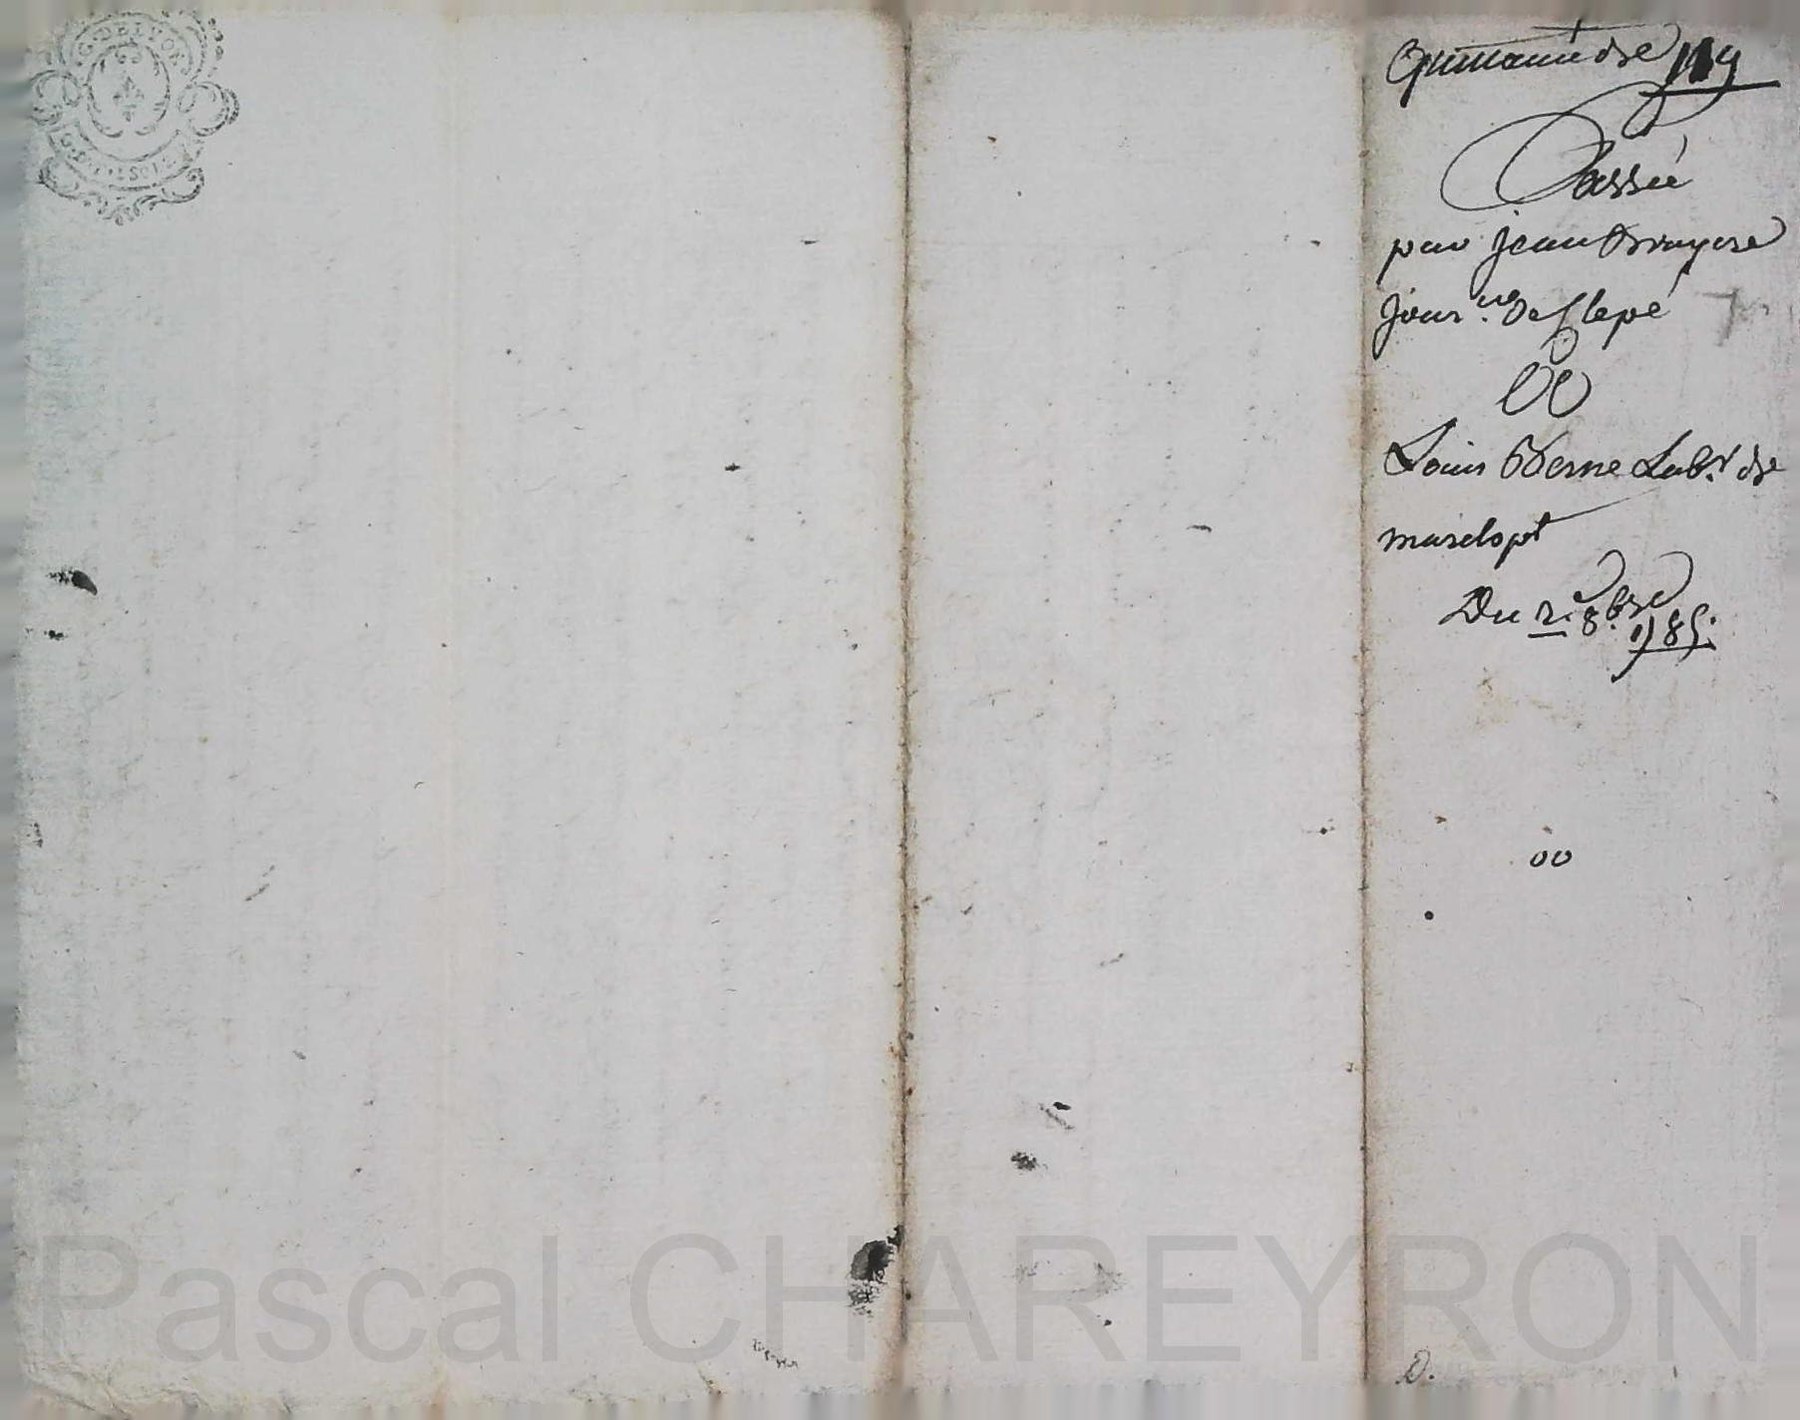 G. DE LYON
119
Passée
par jean Bruyere
jour.er de Clepé
et
Louis Verne Lab.r de
marclopt
Du 2. 8.bre
1785.
00
D.
Pascal CHAREYRON